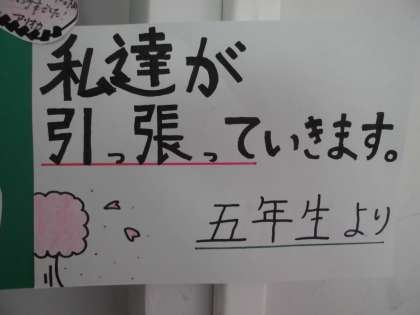 私達が
引っ張っていきます。
五年生より